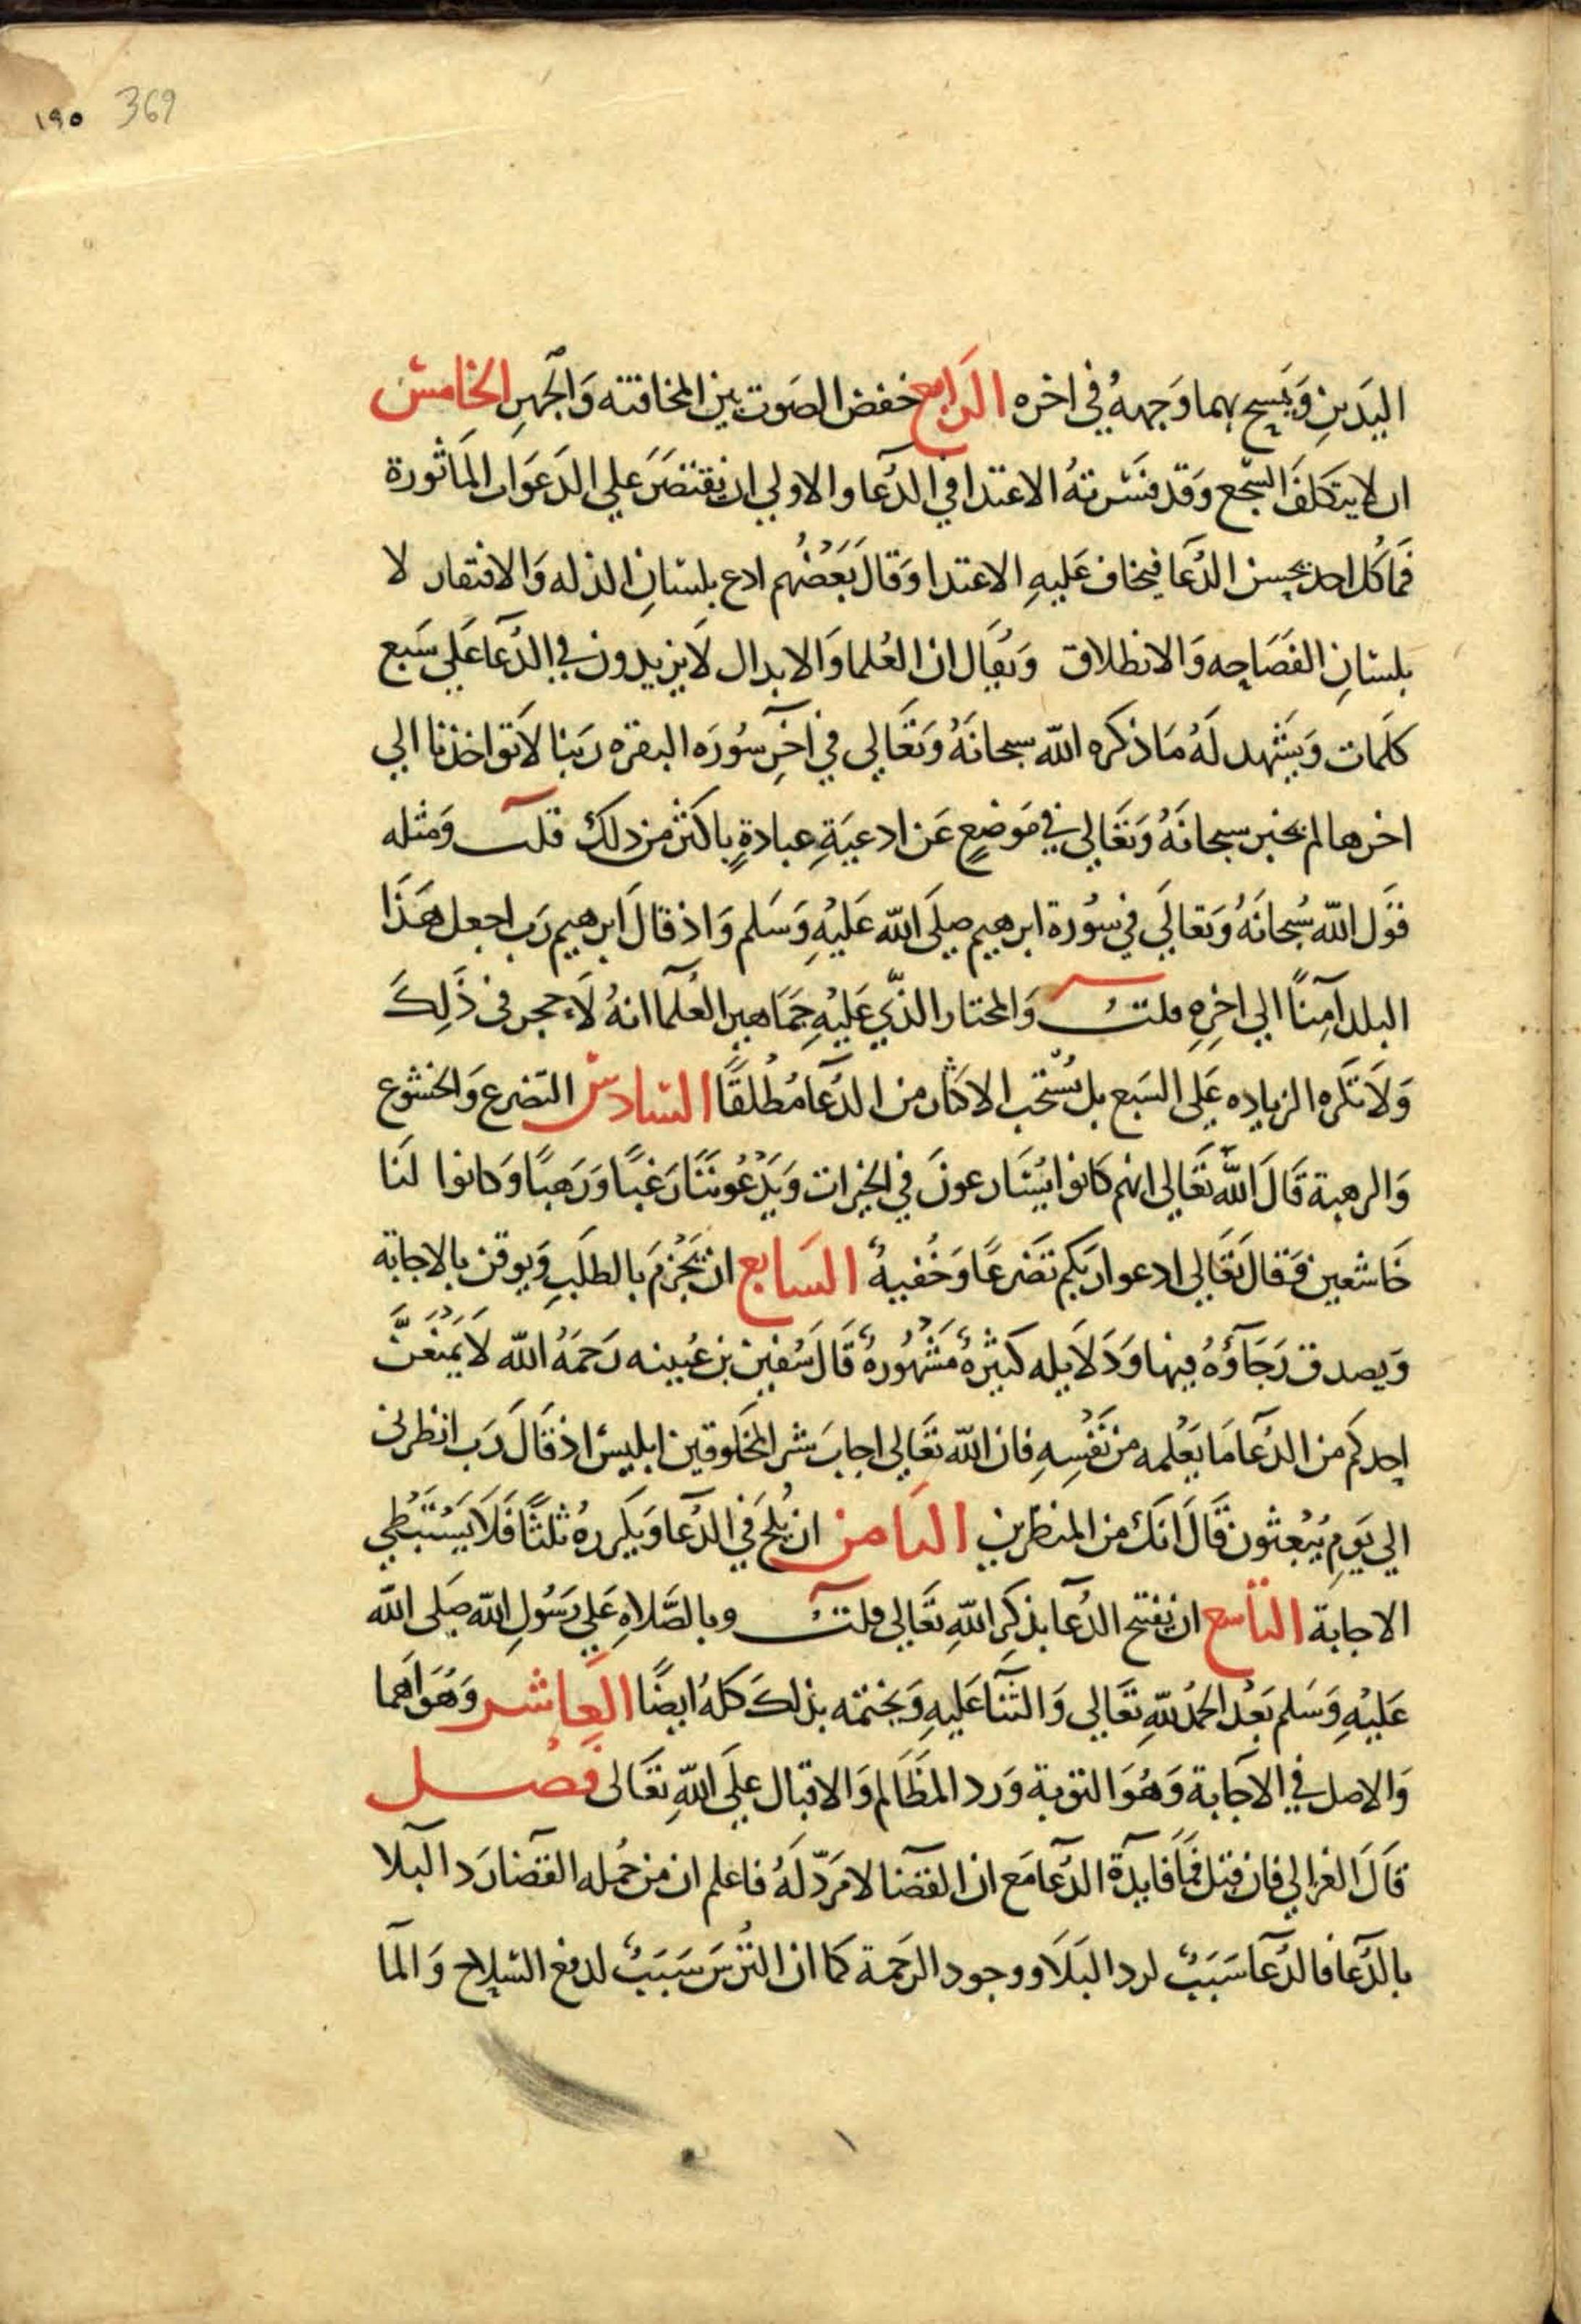 ١٩٥ 369
اليَدَينِ وَيمسح بهما وَجههُ في اخره الرَابع خفض الصَوت بين المخافته وَالجهرِ الخامس
ان لا يتكلفَ السّجع وَقد فسّر ته الاعتدا في الدُعا والاولي ان يقتصَرَ علي الدَعَوات المَاثورة
فمَا كُل احد يحسن الدُعَا فيخاف عَليهِ الاعتدا وَقالَ بَعَضُهُم ادع بلسَانِ الذله وَالافتقار لا
بلسَانِ الفصَاحه وَالانطلاق وَيُقال ان العُلما وَالابدال لَا يزيدون في الدُعَا عَلي سَبع
كلمَات وَيَشهد لَهُ مَا ذكره الله سبحانَهُ وَتعَالي في آخرِ سُورَه البقره رَبنا لَا تؤاخذنا الي
اخرها لم يخبر سبحانَهُ وَتعَالي في مَوَضعٍ عَن ادعيَةِ عبادةٍ باكثر من ذلك قلت وَمثله
قوَل الله سُبحَانَهُ وَتعالَي في سُورة ابرهيم صلَي الله عَليْهِ وَسَلم وَاذ قالَ ابرهيم رَب اجعل هَذَا
البلد آمِنًا الي اخِرِهِ قلت وَالمختار الذّي عَليْهِ جمَاهير العُلمآ انهُ لَا حجر في ذَلِكَ
وَلَا تَكَره الزياده عَلي السَبع بل يُسْتحَب الاكثار من الدُعَا مُطْلقًا السَادسَ التضرع وَالخشوع
وَالرهبة قَالَ اللهُ تعَالي انهم كانوا يُسَارعونَ في الخيرات وَيَدْعُونَنَا رَغبًا وَرَهبًا وَكانوا لنَا
خَاشعين وَقالَ تعَالي ادعوا ربكم تضَرعًا وَخُفيهً السَابع ان يَجْزمَ بالطلَبِ وَيوقن بالاجابة
وَيصدق رَجَآؤهُ فيها وَدَلَايله كثيرهٌ مَشْهُورهٌ قَالَ سُفين بن عُيينه رَحَمَهُ الله لَا يَمْنَعَنَّ
احدكم من الدُعَآ مَا يَعْلمه من نَفْسِهِ فان الله تعَالي اجابَ شر المخلوقين ابليس اذ قَالَ رَب انظرني
الي يَوم يُبْعثون قَالَ انكَ من المنظرين الثامن ان يُلح في الدُعَآ وَيكَررهُ ثلثًا فَلَا يَسْتبْطي
الاجابَة التاسع ان يفتح الدُعَآ بذكِر اللهِ تعَالي قلت وبالصَّلاهِ عَلي رَسُولِ الله صَلى الله
عَليْهِ وَسَلم بَعْد الحمدُ للهِ تعَالي وَالثنآ عَليهِ وَيختمه بذلكَ كلهُ ايضًا العَاشر وَهُوَ اَهما
وَالاصل في الاجَابة وَهُوَ التوبة وَرد المظَالم وَالاقبال علَي اللهِ تعَالى فصل
قَالَ الغزالي فان قيل فمَا فايدَة الدُعَآ مَع ان القضَا لَا مَردّ لَهُ فاعلم ان من جُمله القضَا رَد البلَا
بالدُعَآ فالدُعَآ سَبَبٌ لرد البَلَا ووجود الرَحمة كما ان التُرسَ سَبَبٌ لدفع السلاح وَالمآ